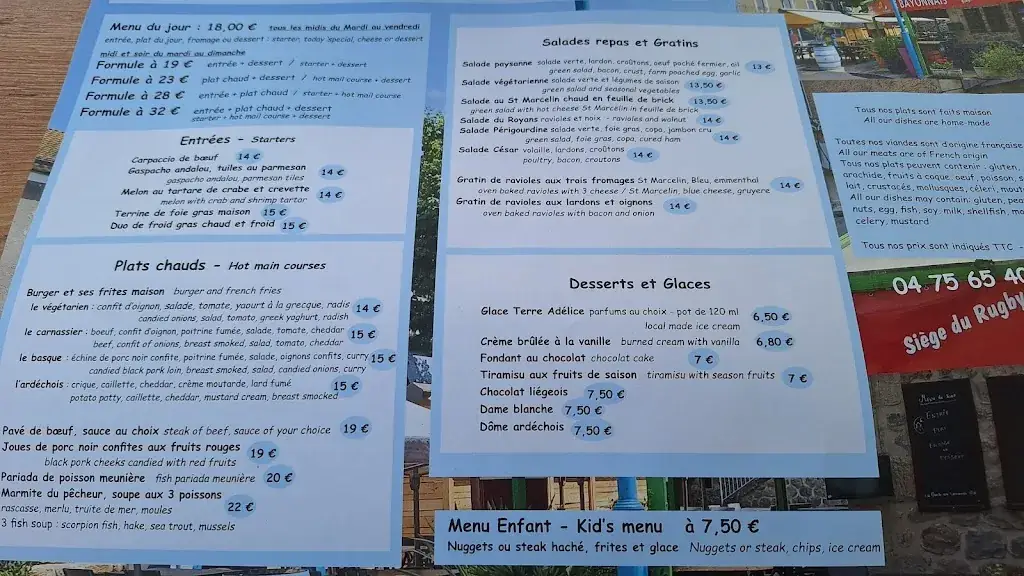 Menu du jour : 18,00 € tous les midis du Mardi au vendredi
entrée, plat du jour, fromage ou dessert : starter, today special, cheese or dessert
midi et soir du mardi au dimanche
Formule à 19 € entrée + dessert / starter + dessert
Formule à 23 € plat chaud + dessert / hot main course + dessert
Formule à 28 € entrée + plat chaud / starter + hot main course
Formule à 32 € entrée + plat chaud + dessert
starter + hot main course + dessert
Entrées - Starters
Carpaccio de bœuf 14 €
Gaspacho andalou, tuiles au parmesan 14 €
gaspacho andalou, parmesan tiles
Melon au tartare de crabe et crevette 14 €
melon with crab and shrimp tartar
Terrine de foie gras maison 15 €
Duo de froid gras chaud et froid 15 €
Plats chauds - Hot main courses
Burger et ses frites maison burger and french fries
le végétarien : confit d'oignon, salade, tomate, yaourt à la grecque, radis 14 €
candied onions, salad, tomato, greek yoghurt, radish
le carnassier : boeuf, confit d'oignon, poitrine fumée, salade, tomate, cheddar 15 €
beef, confit of onions, breast smoked, salad, tomato, cheddar
le basque : échine de porc noir confite, poitrine fumée, salade, oignons confits, curry 15 €
candied black pork loin, breast smoked, salad, candied onions, curry
l'ardéchois : crique, caillette, cheddar, crème moutarde, lard fumé 15 €
potato patty, caillette, cheddar, mustard cream, breast smoked
Pavé de bœuf, sauce au choix steak of beef, sauce of your choice 19 €
Joues de porc noir confites aux fruits rouges 19 €
black pork cheeks candied with red fruits
Pariada de poisson meunière fish pariada meunière 20 €
Marmite du pêcheur, soupe aux 3 poissons 22 €
rascasse, merlu, truite de mer, moules
3 fish soup : scorpion fish, hake, sea trout, mussels
Salades repas et Gratins
Salade paysanne salade verte, lardon, croûtons, oeuf poché fermier, ail 13 €
green salad, bacon, crust, farm poached egg, garlic
Salade végétarienne salade verte et légumes de saison 13,50 €
green salad and seasonal vegetables
Salade au St Marcelin chaud en feuille de brick 13,50 €
green salad with hot cheese St Marcelin in feuille de brick
Salade du Royans ravioles et noix - ravioles and walnut 14 €
Salade Périgourdine salade verte, foie gras, copa, jambon cru 14 €
green salad, foie gras, copa, cured ham
Salade César volaille, lardons, croûtons 14 €
poultry, bacon, croutons
Gratin de ravioles aux trois fromages St Marcelin, Bleu, emmenthal 14 €
oven baked ravioles with 3 cheese / St Marcelin, blue cheese, gruyere
Gratin de ravioles aux lardons et oignons 14 €
oven baked ravioles with bacon and onion
Desserts et Glaces
Glace Terre Adélice parfums au choix - pot de 120 ml 6,50 €
local made ice cream
Crème brûlée à la vanille burned cream with vanilla 6,80 €
Fondant au chocolat chocolat cake 7 €
Tiramisu aux fruits de saison tiramisu with season fruits 7 €
Chocolat liégeois 7,50 €
Dame blanche 7,50 €
Dôme ardéchois 7,50 €
Menu Enfant - Kid's menu à 7,50 €
Nuggets ou steak haché, frites et glace Nuggets or steak, chips, ice cream
BAYONNAIS
Tous nos plats sont faits maison
All our dishes are home-made
Toutes nos viandes sont d'origine française
All our meats are of French origin
Tous nos plats peuvent contenir : gluten,
arachide, fruits à coque, oeuf, poisson,
lait, crustacés, mollusques, céleri,
All our dishes may contain: gluten,
nuts, egg, fish, soy, milk, shellfish,
celery, mustard
Tous nos prix sont indiqués TTC -
04 75 65 40
Siège du Rugby